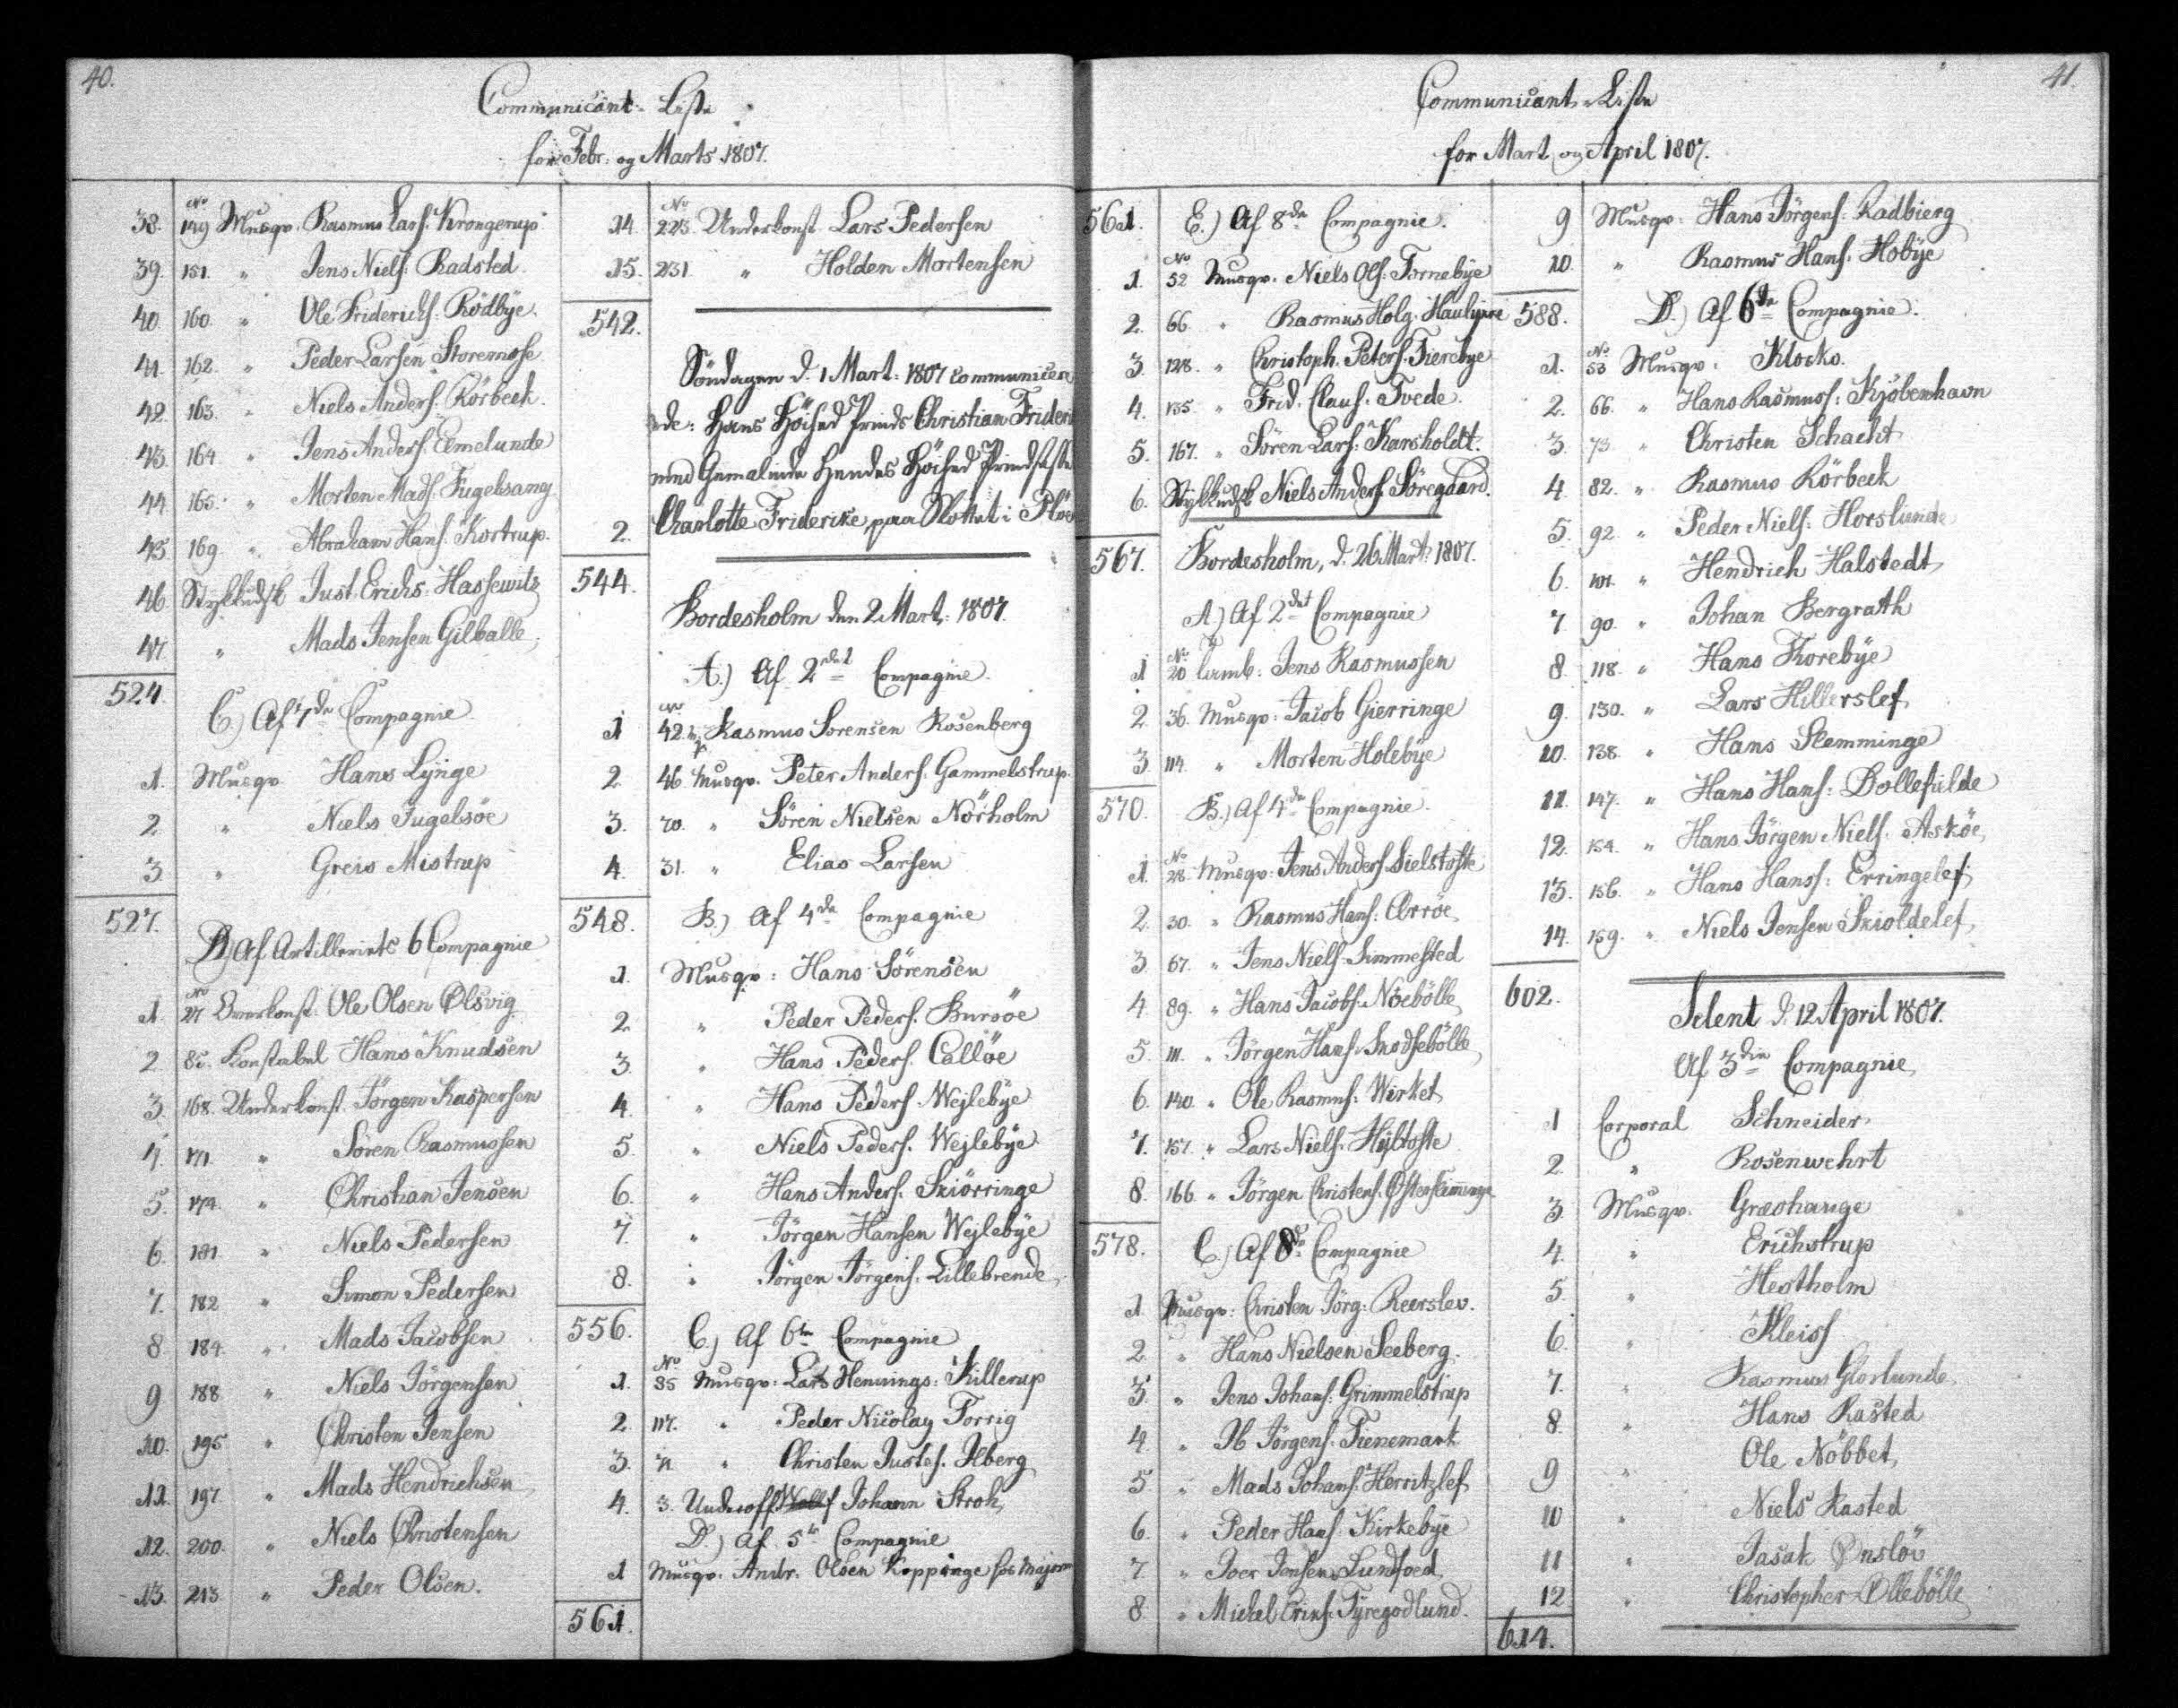 40.
Communicant- Liste
for Febr: og Marts 1807.
38. No 149 Musqv. Rasmus Lars: Krongerup
39. 151. " Jens Niels: Radsted
40. 160. " Ole Friderichs: Rödbÿe.
41. 162. " Peder Larsen Storemose
42. 163. " Niels Anders: Rörbeck.
43. 164 " Jens Anders: Eemelunde
44. 165. " Morten Mads: Fugelsang
45. 169 " Abraham Hans: Kortrup.
46. Stÿkkudsk Just. Erichs: Hassewitz
47 " Mads Jensen Gilballe.
524
C.) Af 7de Compagnie
1. Musqv. Hans Lÿnge
2 " Niels Fugelsöe
3 " Greis Mistrup
527.
D.) Af Artilleriets 6 Compagnie
1. No 27 Overkonst. Ole Olsen Ølsvig
2 85. Konstabel Hans Knudsen
3. 168. Underkonst. Jörgen Kaspersen
4. 171. " Sören Rasmussen
5. 174. " Christian Jensen
6. 181. " Niels Pedersen
7. 182 " Simon Pedersen
8 184. " Mads Jacobsen
9 188 " Niels Jörgensen
10. 195 " Christen Jensen
11. 197 " Mads Hendrichsen
12. 200. " Niels Christensen
13. 213. " Peder Olsen.
14. No 225. Underkonst. Lars Pedersen
15. 231. " Holden Mortensen
542.
Söndagen d. 1 Mart: 1807 communicere
de: Hans Höihed Prinds Christian Frider
med Gemalinde Hendes Höihed Prindsesse
2. Charlotte Friderike paa Slottet i Plöe
544.
Bordesholm den 2 Mart: 1807.
A.) Af 2det Compagnie.
1 No 42. Rasmus Sorensen Rosenberg
2 46. Musqv. Peter Anders: Gammelstrup.
3. 70. " Sören Nielsen Nörholm
4. 31. " Elias Larsen
548. B.) Af 4de Compagnie
1. Musqv: Hans Sörensen
2 " Peder Peders. Bursöe
3. " Hans Peders. Callöe
4. " Hans Peders. Wejlebÿe
5. " Niels Peders. Wejlebÿe
6. " Hans Anders. Skiörringe
7. " Jörgen Hansen Wejlebÿe
8. " Jörgen Jörgens. Lillebrende
556. C.) Af 6te Compagnie
1. No 35 Musqv: Lars Hennings: Killerup
2. 117. " Peder Nicolay Torrig
3. 71 " Christen Justes. Ilberg
4. 3. Underoff. Johann Stroh,
D.) Af 5te Compagnie
1 Musqv. Andr. Olsen Koppinge hos Majoren
561.
41.
Communicant-Liste
for Mart. og April 1807.
561. E.) Af 8de Compagnie.
1. No 52 Musqv. Niels Ols: Tornebÿe
2. 66. " Rasmus Holg.
3. 128. " Christoph. Peters. Fierebÿe
4. 135. " Frid. Claus. Tvede.
5. 167. " Sören Lars: Karsholdt.
6. Stÿkkudsk Niels Anders. Söregaard.
567. Bordesholm, d. 26 Mart: 1807.
A.) Af 2det Compagnie
1 No 20 Tamb: Jens Rasmussen
2. 36. Musqv: Jacob Gierringe
3. 114. " Morten Holebÿe
570. B.) Af 4de Compagnie.
1. No 28. Musqv: Jens Anders. Sielstofte
2. 30. " Rasmus Hans: Arröe,
3. 67. " Jens Niels. Simmested
4. 89. " Hans Jacobs. Nöebölle
5. 111. " Jörgen Hans: Snodsebölle
6. 140. " Ole Rasmus: Wirket
7. 157. " Lars Niels. Hÿltofte
8. 166. " Jörgen Christens. Østerslemminge
578. C.) Af 8de Compagnie
1. Musqv: Christen Jörg: Reerslev.
2. " Hans Nielsen Seeberg.
3 " Jens Johans: Grimmelstrup
4. " Ib Jörgens: Tienemark
5 " Mads Johans: Herritzlef
6. " Peder Hans. Kirkebÿe
7. " Joer Jensen Lundfoed
8. " Michel Erens: Tÿregodlund.
9 Musqv: Hans Jörgens: Radbierg
10. " Rasmus Hans: Hobÿe
588. D.) Af 6te Compagnie.
1. No 53 Musqv: Klocko.
2. 66. " Hans Rasmuss: Kjöbenhavn
3. 73 " Christen Schacht
4. 82. " Rasmus Rörbeck
5. 92. " Peder Niels: Horslunde
6. 101. " Hendrich Halstedt
7. 90. " Johan Bergrath
8. 118. " Hans Torebÿe
9. 130. " Lars Hillerslef
10. 138. " Hans Slemminge
11. 147. " Hans Hans: Dollefielde
12. 154. " Hans Jörgen Niels. Asköe,
13. 156. " Hans Hanss: Erringelef
14. 159. " Niels Jensen Skioldelef
602.
Selent d. 12 April 1807.
Af 3die Compagnie
1 Corporal Schneider
2. " Rosenwehrt
3. Musqv. Græshauge
4. " Erichstrup
5. " Hestholm
6. " Kleiss
7. " Rasmus Glorlunde
8. " Hans Rasted
9 " Ole Nöbbet
10 " Niels Rasted
11 " Isak Ønslöv
12 " Christopher Ollebölle
614.